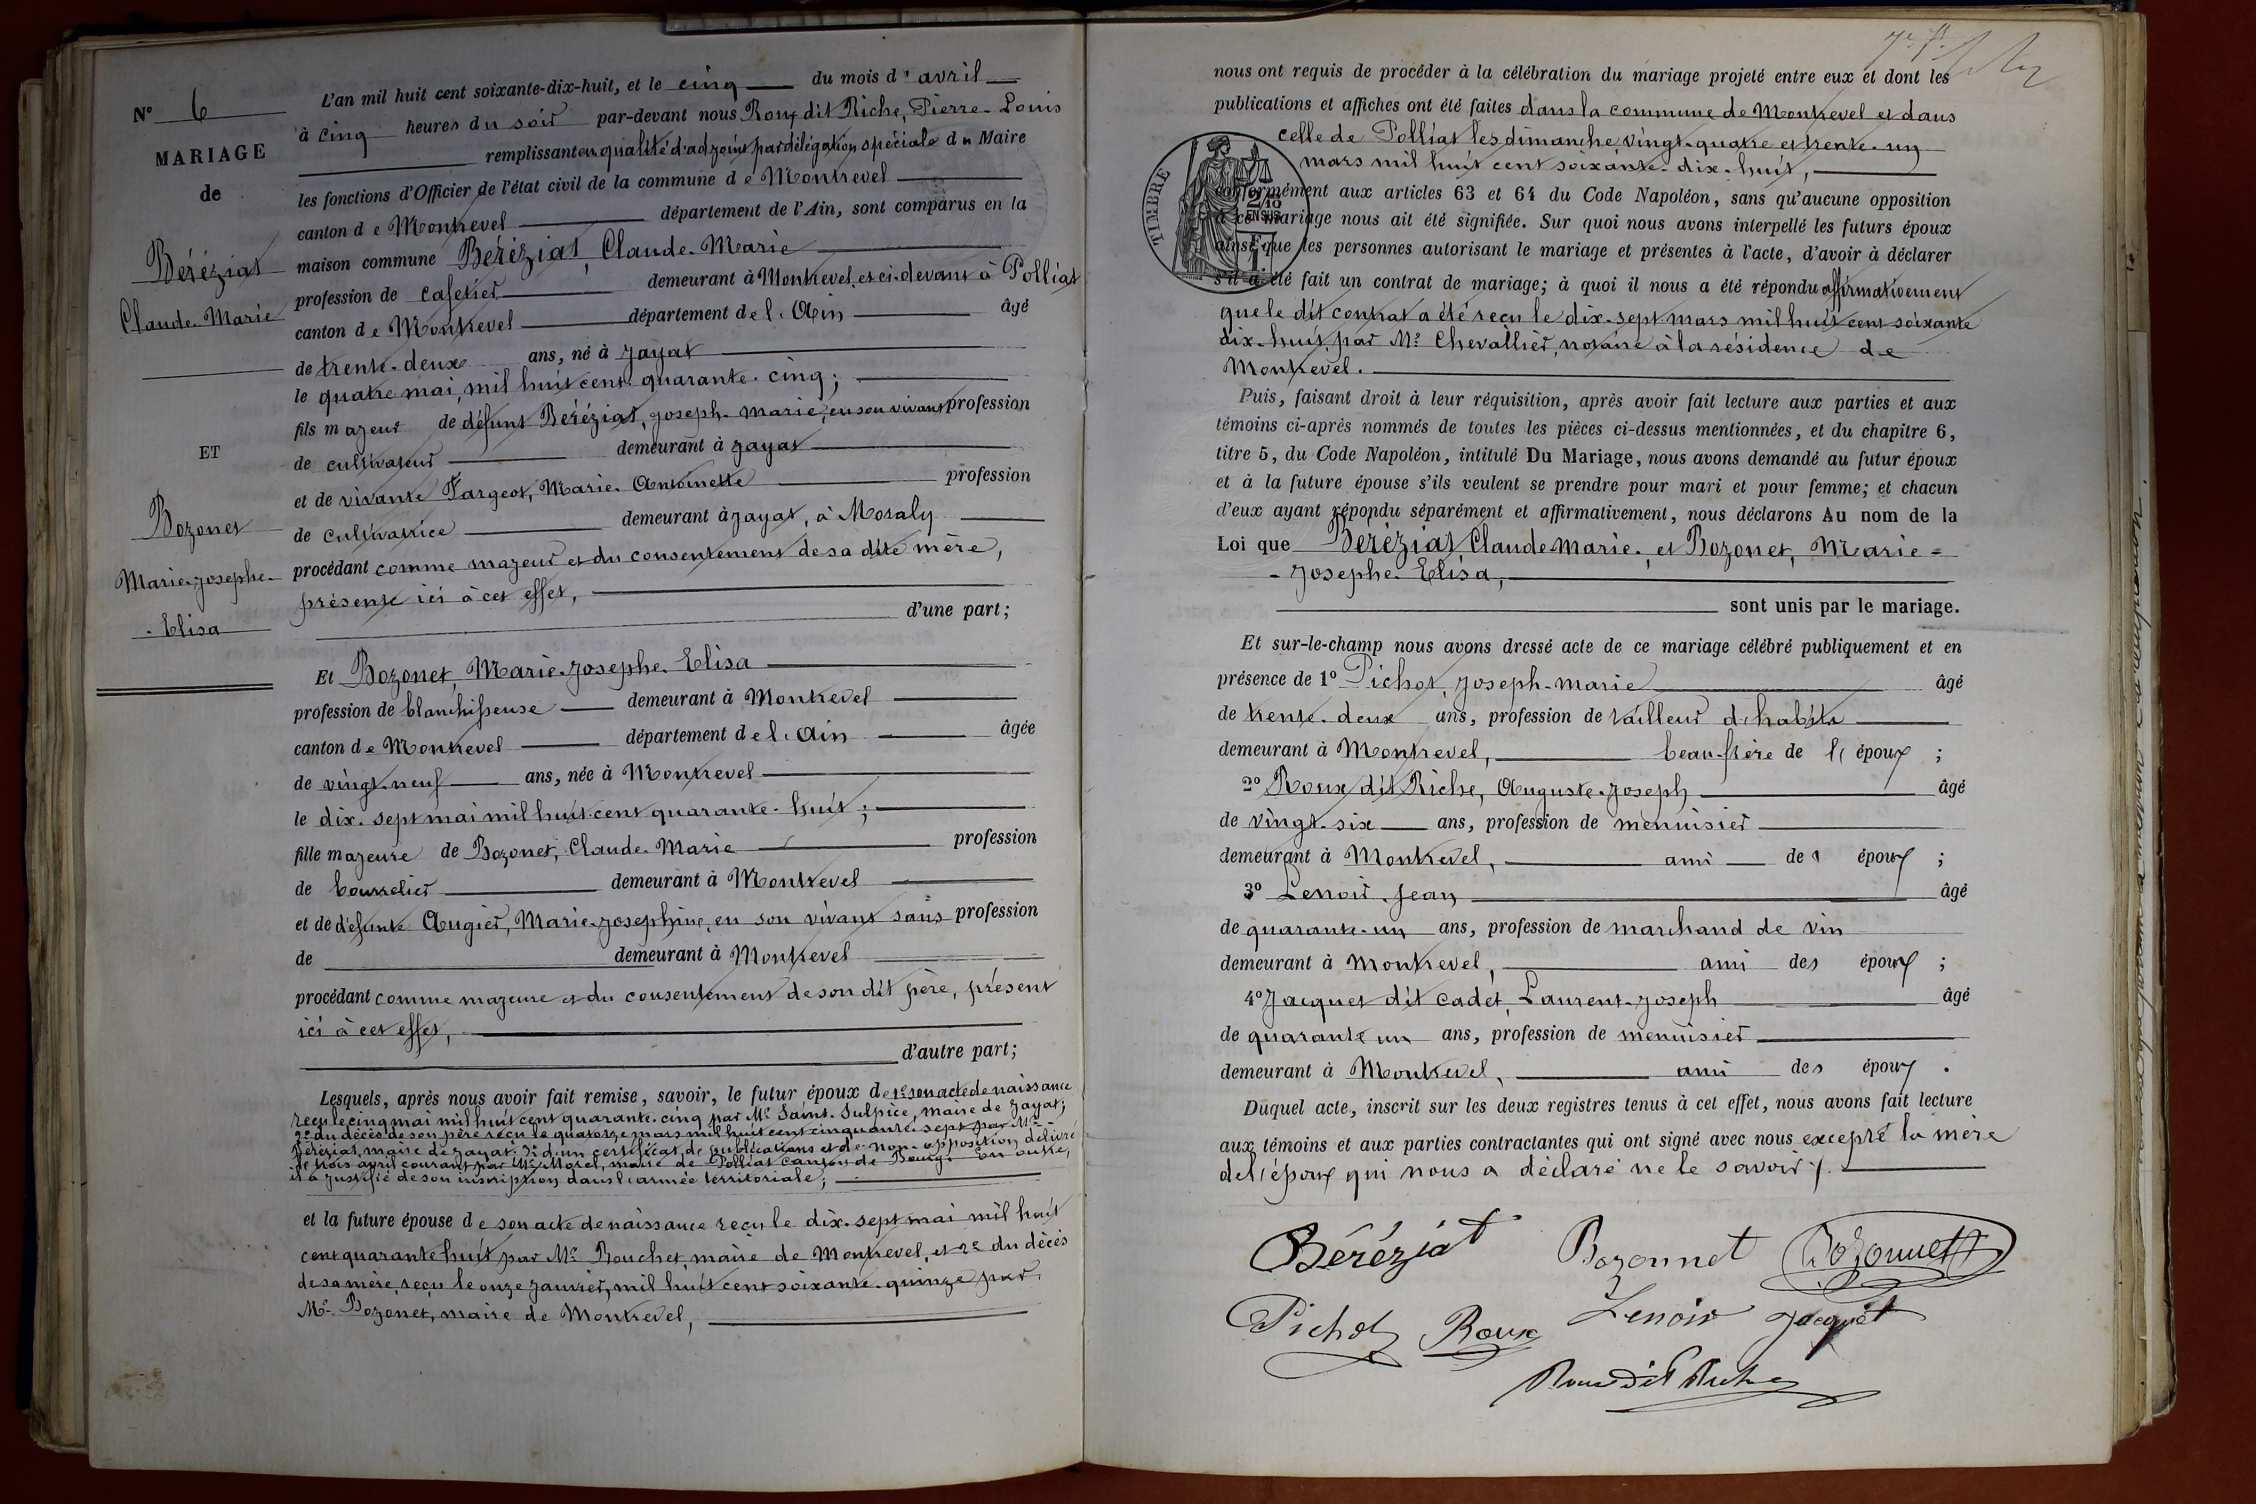 N° 6
MARIAGE
de
Béréziat
Claude-Marie
ET
Bozonet
Marie-Josephe-
-Elisa
L'an mil huit cent soixante-dix-huit, et le cinq du mois d'avril
à cinq heures du soir par-devant nous Roux dit Riche, Pierre-Louis
remplissant en qualité d'adjoint par délégation spéciale du Maire
les fonctions d'Officier de l'état civil de la commune de Montrevel
canton de Montrevel département de l'Ain, sont comparus en la
maison commune Béréziat, Claude-Marie
profession de cafetier demeurant à Montrevel, et ci-devant à Polliat
canton de Montrevel département de l'Ain âgé
de trente-deux ans, né à Jayat
le quatre mai, mil huit cent quarante-cinq;
fils majeur de défunt Béréziat, Joseph-Marie, en son vivant profession
de cultivateur demeurant à Jayat
et de vivante Fargeot, Marie-Antoinette profession
de cultivatrice demeurant à Jayat, à Mosaly
procédant comme majeur et du consentement de sa dite mère,
présente ici à cet effet,
d'une part;
Et Bozonet, Marie-Josephe-Elisa
profession de blanchisseuse demeurant à Montrevel
canton de Montrevel département de l'Ain âgée
de vingt-neuf ans, née à Montrevel
le dix-sept mai mil huit cent quarante-huit;
fille majeure de Bozonet, Claude-Marie profession
de bourrelier demeurant à Montrevel
et de défunte Augier, Marie-Josephine, en son vivant sans profession
de demeurant à Montrevel
procédant comme majeure et du consentement de son dit père, présent
ici à cet effet,
d'autre part;
Lesquels, après nous avoir fait remise, savoir, le futur époux de 1° son acte de naissance
reçu le cinq mai mil huit cent quarante-cinq par Mr Saint-Sulpice, maire de Jayat;
2° du décès de son père reçu le quatorze mars mil huit cent cinquante-sept par Mr
Béréziat, maire de Jayat; 3° d'un certificat de publications et de non-opposition délivré
le trois avril courant par Mr Morel, maire de Polliat canton de Bourg. En outre,
il a justifié de son inscription dans l'armée territoriale;
et la future épouse de son acte de naissance reçu le dix-sept mai mil huit
cent quarante huit par Mr Bouchet, maire de Montrevel, et 2° du décès
de sa mère, reçu le onze janvier, mil huit cent soixante-quinze par
Mr Bozonet, maire de Montrevel,
nous ont requis de procéder à la célébration du mariage projeté entre eux et dont les
publications et affiches ont été faites dans la commune de Montrevel et dans
celle de Polliat les dimanche vingt-quatre et trente-un
mars mil huit cent soixante-dix-huit,
TIMBRE
2/10
EN SUS
conformément aux articles 63 et 64 du Code Napoléon, sans qu'aucune opposition
à ce mariage nous ait été signifiée. Sur quoi nous avons interpellé les futurs époux
ainsi que les personnes autorisant le mariage et présentes à l'acte, d'avoir à déclarer
s'il a été fait un contrat de mariage; à quoi il nous a été répondu affirmativement
que le dit contrat a été reçu le dix-sept mars mil huit cent soixante
dix-huit, par Mr Chevallier, notaire à la résidence de
Montrevel.
Puis, faisant droit à leur réquisition, après avoir fait lecture aux parties et aux
témoins ci-après nommés de toutes les pièces ci-dessus mentionnées, et du chapitre 6,
titre 5, du Code Napoléon, intitulé Du Mariage, nous avons demandé au futur époux
et à la future épouse s'ils veulent se prendre pour mari et pour femme; et chacun
d'eux ayant répondu séparément et affirmativement, nous déclarons Au nom de la
Loi que Béréziat, Claude Marie, et Bozonet, Marie-
-Josephe-Elisa,
sont unis par le mariage.
Et sur-le-champ nous avons dressé acte de ce mariage célébré publiquement et en
présence de 1° Pichot, Joseph-Marie âgé
de trente-deux ans, profession de tailleur d'habits
demeurant à Montrevel, beau-frère de l'époux;
2° Roux dit Riche, Auguste-Joseph âgé
de vingt-six ans, profession de menuisier
demeurant à Montrevel, ami des époux;
3° Lenoir Jean âgé
de quarante-un ans, profession de marchand de vin
demeurant à Montrevel, ami des époux;
4° Jacquet dit Cadet, Laurent-Joseph âgé
de quarante un ans, profession de menuisier
demeurant à Montrevel, ami des époux.
Duquel acte, inscrit sur les deux registres tenus à cet effet, nous avons fait lecture
aux témoins et aux parties contractantes qui ont signé avec nous excepté la mère
de l'époux qui nous a déclaré ne le savoir.
Béréziat Bozonnet Bozonnet
Pichot Roux Lenoir Jacquet
Roux dit Riche